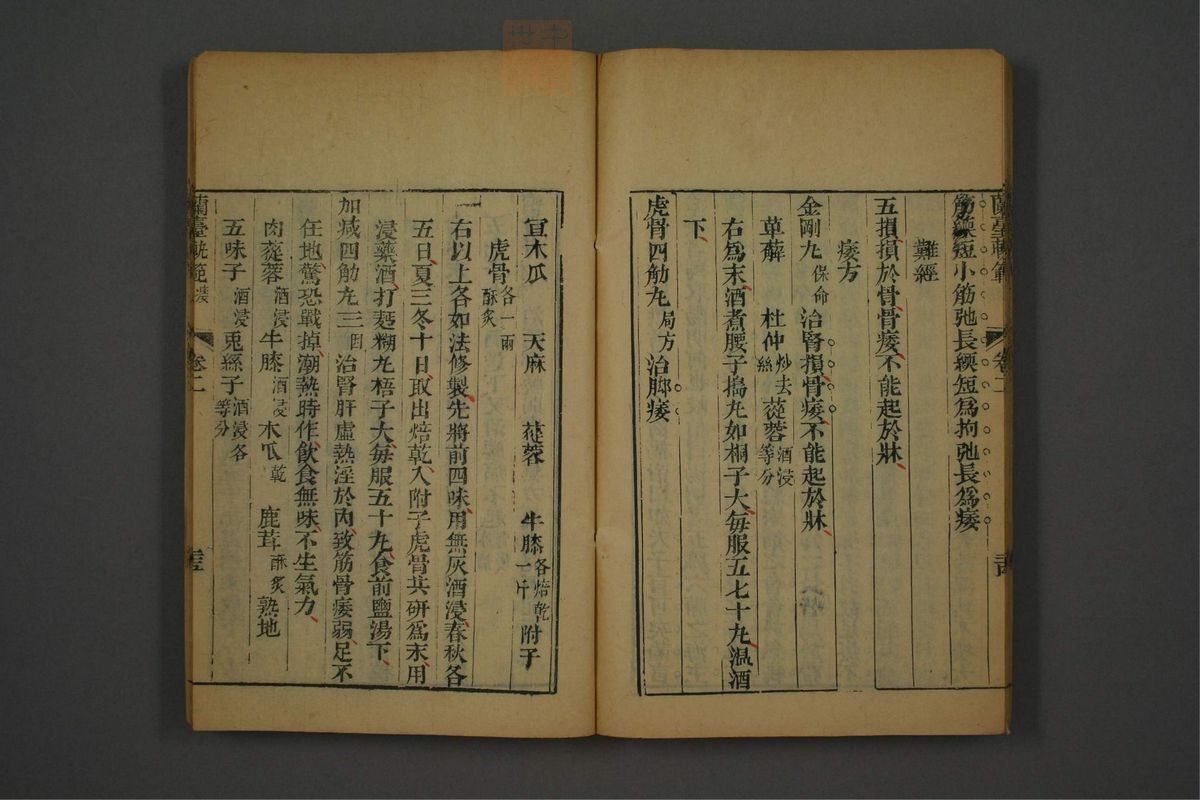 蘭臺軌範 卷二
筋緛短小筋弛長緛短爲拘弛長爲痿
難經
五損損於骨骨痿不能起於牀
痿方
金剛丸保命 治腎損骨痿不能起於牀
萆薢 杜仲炒去絲 蓯蓉酒浸等分
右爲末酒煮腰子搗丸如桐子大每服五七十丸溫酒
下
虎骨四觔丸局方 治脚痿
宣木瓜 天麻 蓯蓉 牛膝各焙乾一斤 附子
虎骨各一兩酥炙
右以上各如法修製先將前四味用無灰酒浸春秋各
五日夏三冬十日取出焙乾入附子虎骨共研爲末用
浸藥酒打麪糊丸梧子大每服五十丸食前鹽湯下
加减四觔丸三因 治腎肝虛熱淫於内致筋骨痿弱足不
任地驚恐戰掉潮熱時作飲食無味不生氣力
肉蓯蓉酒浸 牛膝酒浸 木瓜乾 鹿茸酥炙 熟地
五味子酒浸 兎絲子酒浸各等分
蘭臺軌範 卷二